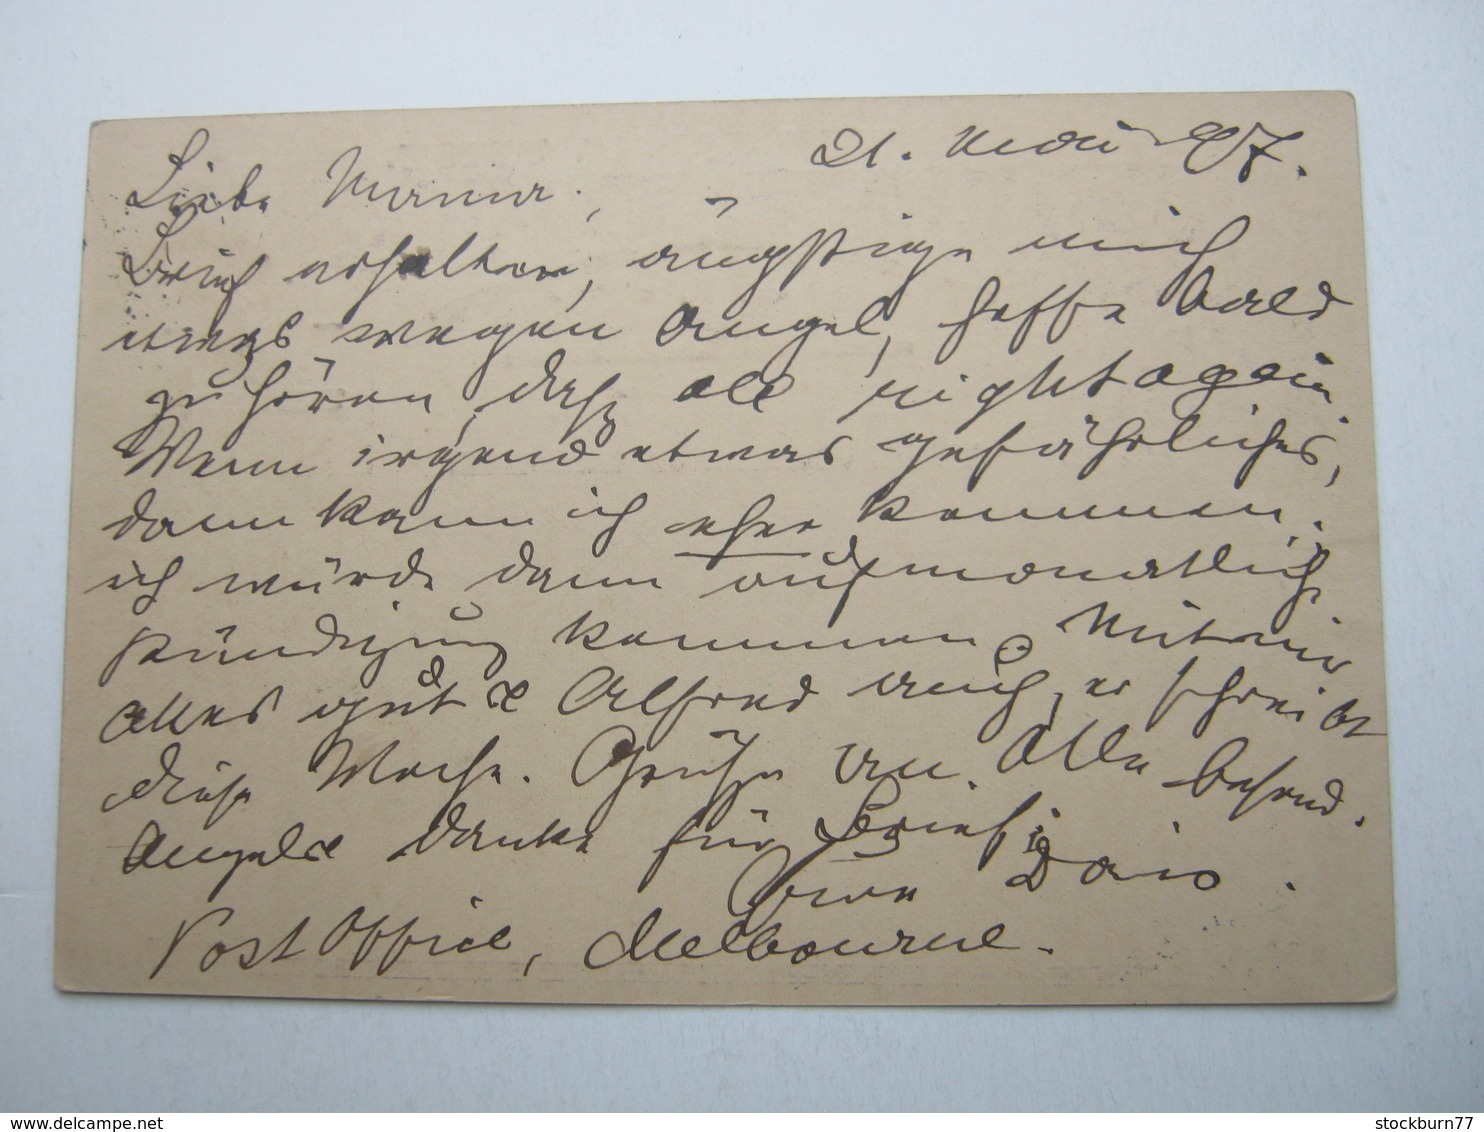 21. Mai 97.
Liebe Mama,
Brief erhalten, ängstige mich
etwas wegen Angel, hoffe bald
zu hören, daß all right again.
Wenn irgend etwas gefährliches,
dann kann ich eher kommen.
ich würde dann auf monatliche
Kündigung kommen. Mit mir
Alles gut & Alfred auch, er schreibt
diese Woche. Grüße an Alle besond.
Angel & danke für Brief
Dein
Post Office, Melbourne.
stockburn77